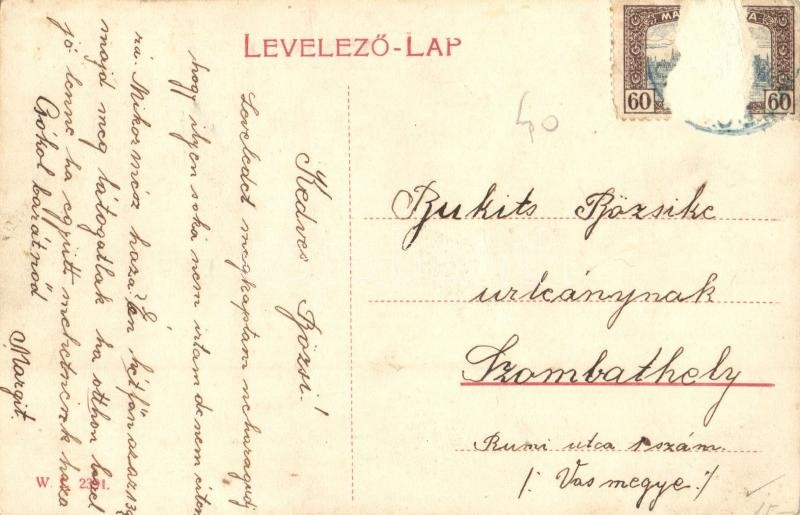 LEVELEZŐ-LAP
60 60
40
Kedves Bözsi!
Leveledet megkaptam ne haragudj
hogy ilyen soka nem irtam de nem értem
rá. Mikor mész haza? én hétfőn
majd meg látogatlak ha otthon leszel
jó lenne ha együtt mehetnénk haza
Csókol barátnőd
Margit.
Bukits Bözsike
urleánynak
Szombathely
Rumi utca 1 szám.
/: Vas megye :/
W. 2391.